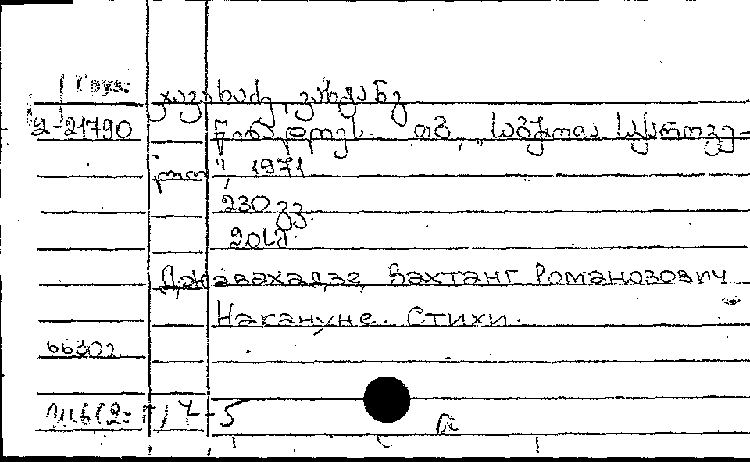 Груз.
ჯავახაძე, ვახტანგ
2-21790
წინადღეს. თბ., „საბჭოთა საქართვე-
ლო", 1971
230 გვ.
20 სმ.
Джавахадзе, Вахтанг Романозович
Накануне. Стихи.
66302